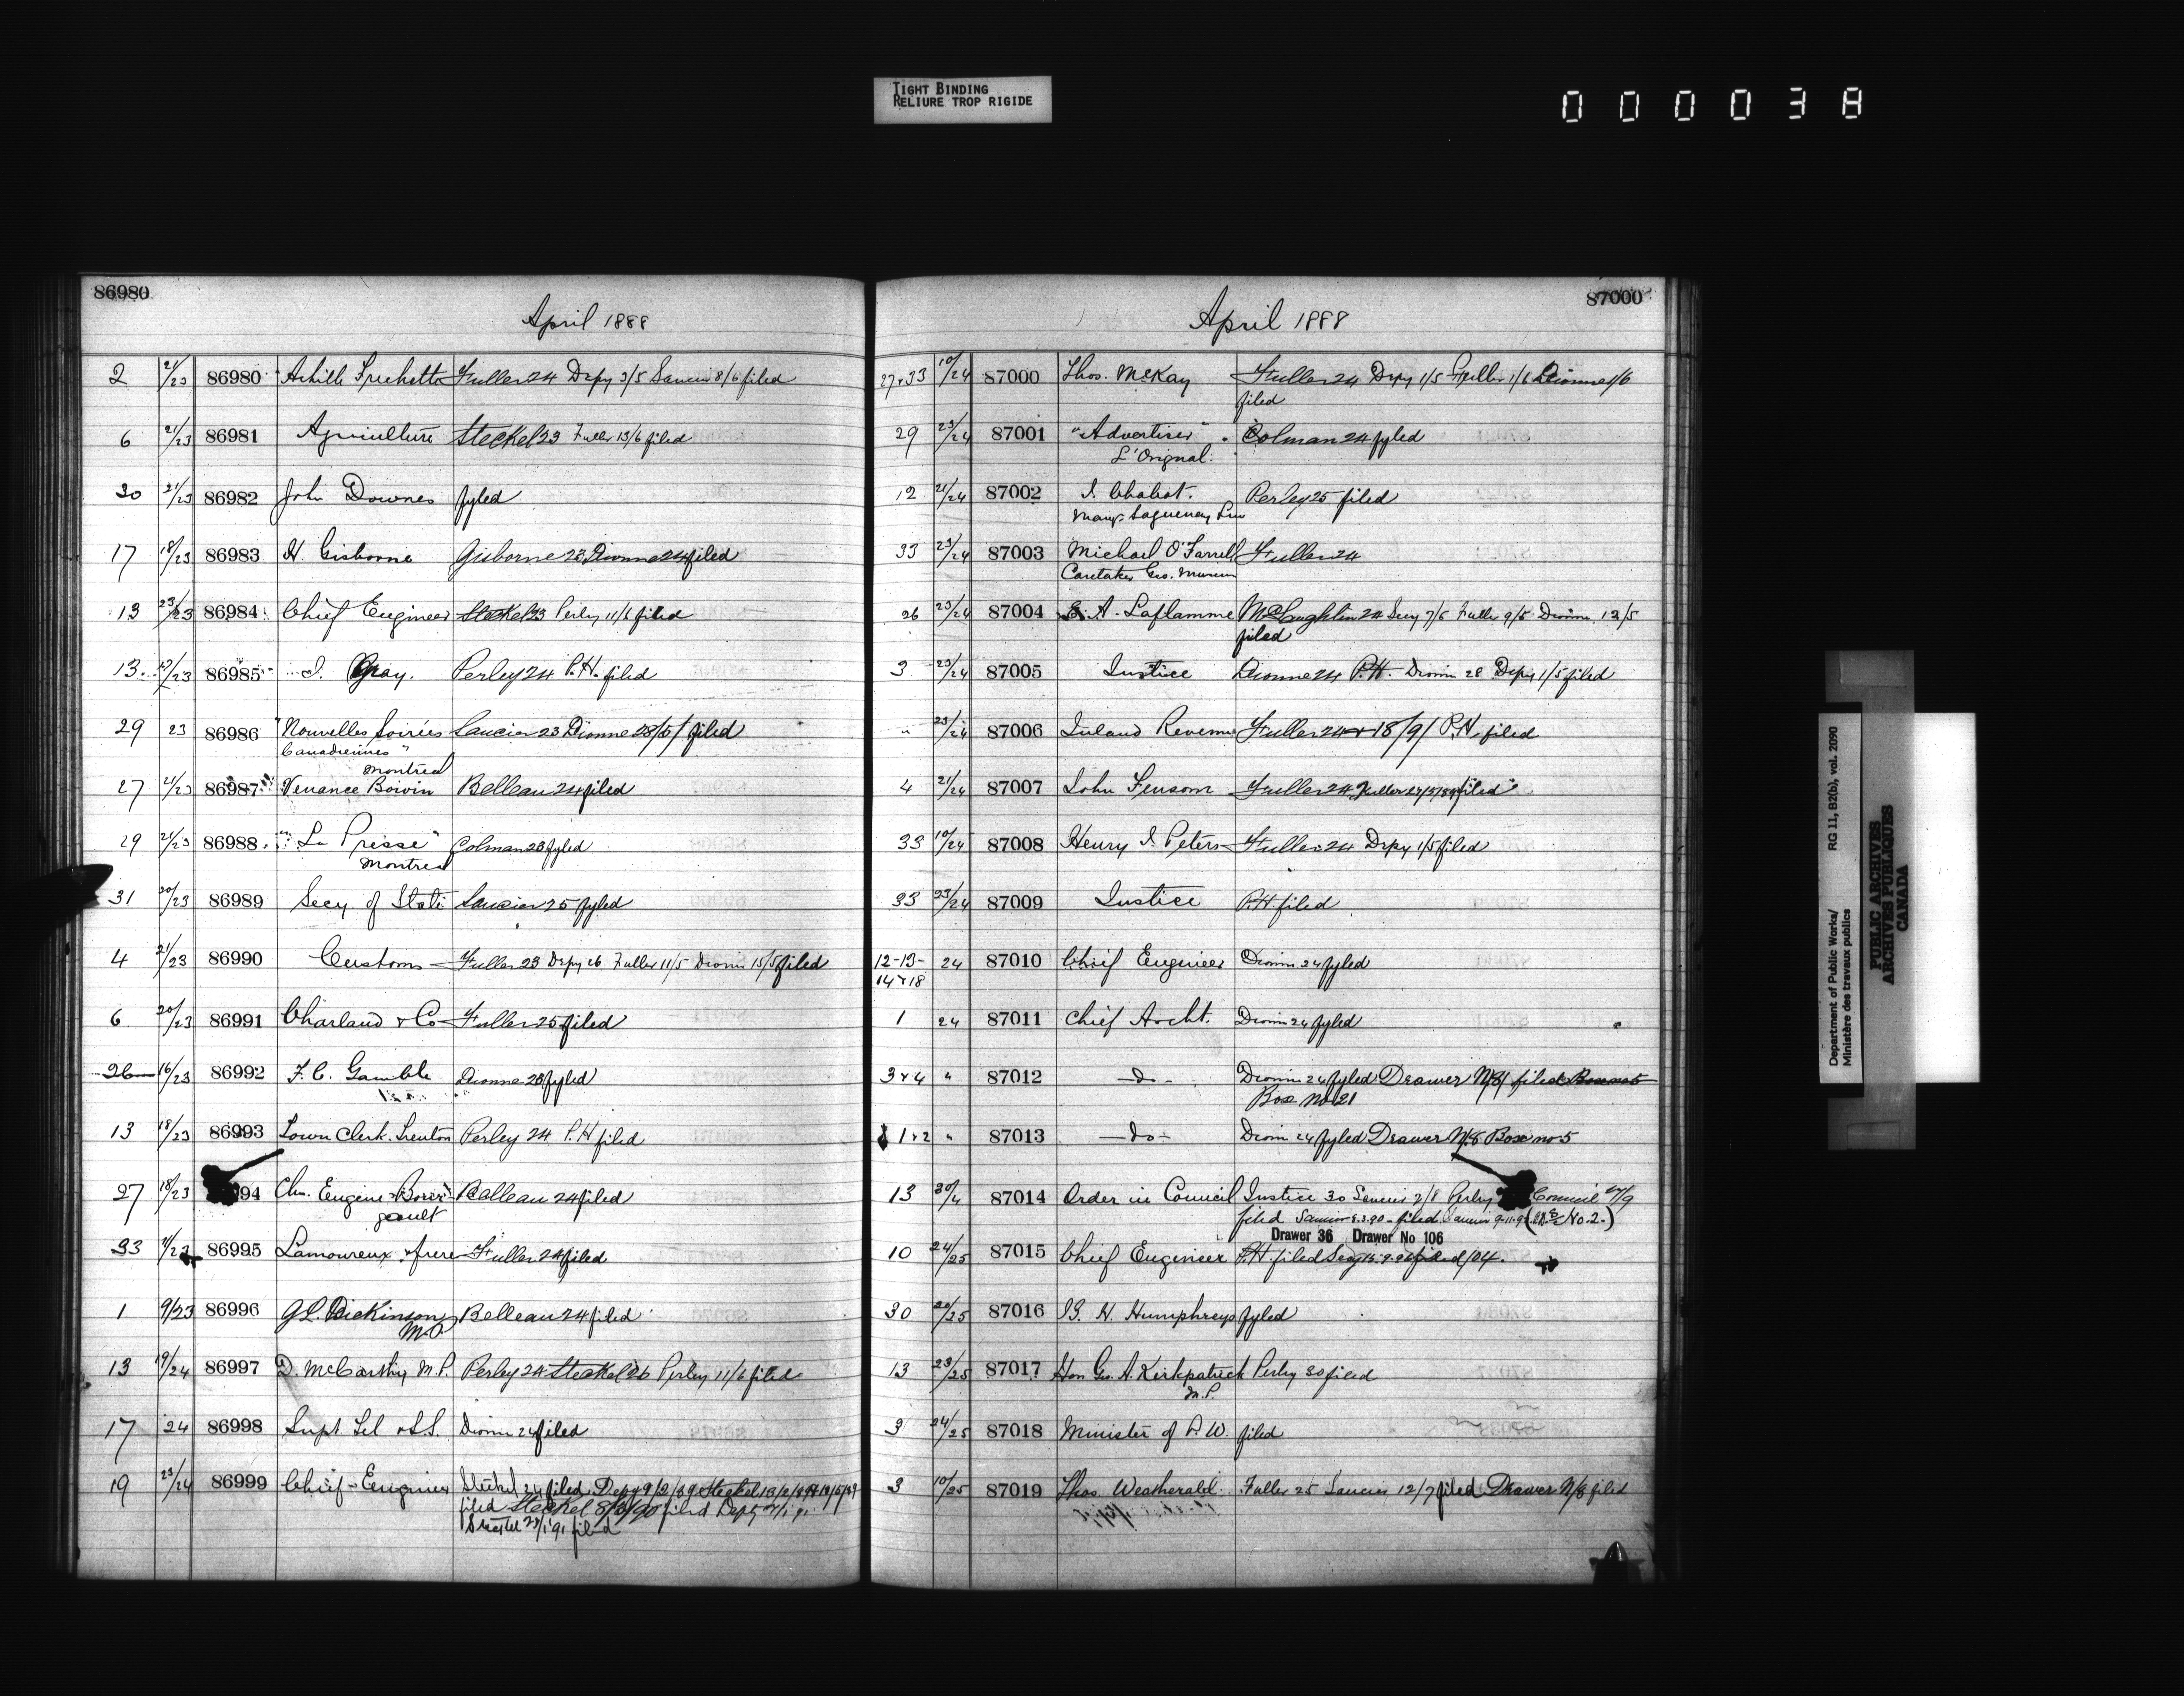 TIGHT BINDING
RELIURE TROP RIGIDE
000038
86980
April 1888
2 21/23 86980 Achille Frechette Fuller 24 Depy 3/5 Saucier 8/6 filed
6 21/23 86981 Agriculture Steckel 23 Fuller 13/6 filed
30 21/23 86982 John Downes fyled
17 18/23 86983 H. Gisborne Gisborne 23 Dionne 24 filed
13 23/23 86984 Chief Engineer Steckel 23 Perley 11/6 filed
13. /23 86985 J. Gray. Perley 24 P.H. filed
29 23 86986 "Nouvelles Soirées Saucier 23 Dionne 28/5/ filed
Canadiennes"
Montreal
27 21/23 86987 Venance Boivin Belleau 24 filed
29 21/23 86988 "La Presse" Colman 23 fyled
Montreal
31 20/23 86989 Secy. of State Saucier 25 fyled
4 21/23 86990 Customs Fuller 23 Depy 26 Fuller 11/5 Dionne 15/5 filed
6 20/23 86991 Charland & Co Fuller 25 filed
26 16/23 86992 F. C. Gamble Dionne 23 fyled
13 18/23 86993 Town Clerk. Trenton Perley 24 P.H filed
27 18/23 94 Chs. Eugene Belleau 24 filed
gault
33 /23 86995 Lamoureux & frere Fuller 24 filed
1 9/23 86996 G L. Dickinson Belleau 24 filed
M.P
13 19/24 86997 D. McCarthy M.P. Perley 24 Steckel 26 Perley 11/6 filed
17 24 86998 Supt Tel & S.S. Dionne 24 filed
19 23/24 86999 Chief Engineer Steckel 24 filed Depy 9/2/89 Steckel
filed Steckel filed Depty
Steckel 23/1/91 filed
87000
April 1888
27 & 33 10/24 87000 Thos. McKay Fuller 24 Depy 1/5 Fuller 1/6 Dionne 1/6
filed
29 23/24 87001 "Advertiser" Colman 24 fyled
L'Orignal.
12 21/24 87002 J. Chabot. Perley 25 filed
Mangr Saguenay Line
33 23/24 87003 Michael O'Farrell Fuller 24
Caretaker Geo. Museum
26 23/24 87004 A. Laflamme McLaughlin 24 Secy 7/5 Fuller 9/5 Dionne 12/5
filed
3 23/24 87005 Justice Dionne 24 P.H. Dionne 28 Depy 1/5 filed
" 23/24 87006 Inland Revenue Fuller 24 + 18/9/ P.H. filed
4 21/24 87007 John Fensom Fuller 24 Fuller filed
33 10/24 87008 Henry J. Peters Fuller 24 Depy 1/5 filed
33 23/24 87009 Justice P.H filed
12-13- 24 87010 Chief Engineer Dionne 24 fyled
14 & 18
1 24 87011 Chief Archt. Dionne 24 fyled
3 & 4 " 87012 —do— Dionne 24 fyled Drawer N/8/ filed Box no 5
Box No 21
1 & 2 " 87013 —do— Dionne 24 fyled Drawer N/8 Box no 5
13 30/4 87014 Order in Council Justice 30 Saucier 2/8 Perley Council /9
filed Saucier 8.3.90 - filed. Saucier ( No. 2.)
Drawer 36 Drawer No 106
10 24/25 87015 Chief Engineer P.H. filed Secy filed 104.
30 20/25 87016 B. H. Humphreys fyled
13 23/25 87017 Hon Geo. A. Kirkpatrick Perley 30 filed
M.P.
3 24/25 87018 Minister of P. W. filed
3 10/25 87019 Thos. Weatherald. Fuller 25 Saucier 12/7 filed Drawer N/8 filed
Department of Public Works/ RG 11, B2(b), vol. 2090
Ministère des travaux publics
PUBLIC ARCHIVES
ARCHIVES PUBLIQUES
CANADA